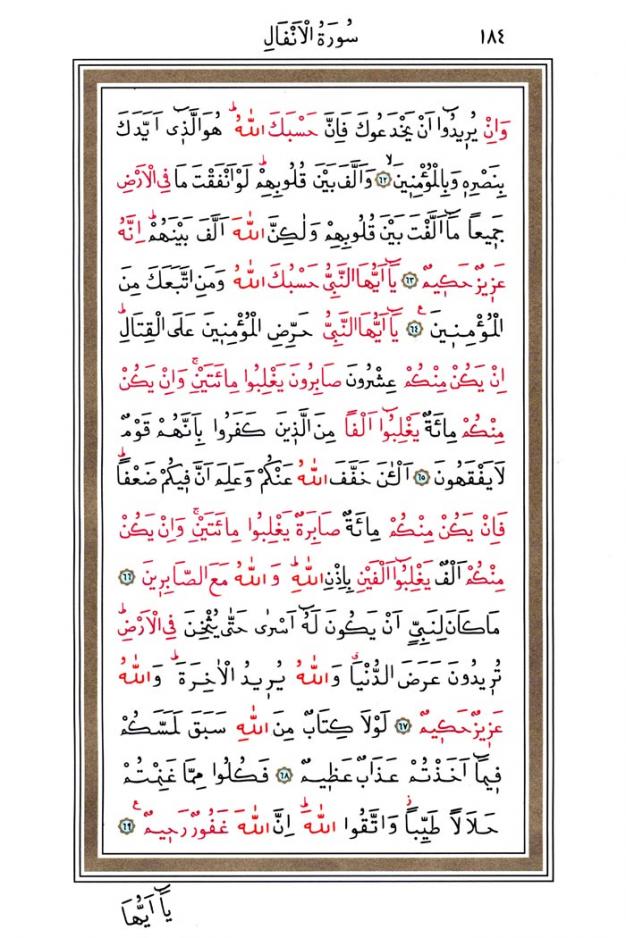 سُورَةُ الْاَنْفَالِ ١٨٤
وَاِنْ يُرِيدُٓوا اَنْ يَخْدَعُوكَ فَاِنَّ حَسْبَكَ اللّٰهُۜ هُوَ الَّذ۪ٓي اَيَّدَكَ
بِنَصْرِه۪ وَبِالْمُؤْمِن۪ينَۙ ﴿٦٢﴾ وَاَلَّفَ بَيْنَ قُلُوبِهِمْۜ لَوْ اَنْفَقْتَ مَا فِي الْاَرْضِ
جَم۪يعاً مَٓا اَلَّفْتَ بَيْنَ قُلُوبِهِمْ وَلٰكِنَّ اللّٰهَ اَلَّفَ بَيْنَهُمْۜ اِنَّهُ
عَز۪يزٌ حَك۪يمٌ ﴿٦٣﴾ يَٓا اَيُّهَا النَّبِيُّ حَسْبُكَ اللّٰهُ وَمَنِ اتَّبَعَكَ مِنَ
الْمُؤْمِن۪ينَ۟ ﴿٦٤﴾ يَٓا اَيُّهَا النَّبِيُّ حَرِّضِ الْمُؤْمِن۪ينَ عَلَى الْقِتَالِۜ
اِنْ يَكُنْ مِنْكُمْ عِشْرُونَ صَابِرُونَ يَغْلِبُوا مِائَتَيْنِۚ وَاِنْ يَكُنْ
مِنْكُمْ مِائَةٌ يَغْلِبُٓوا اَلْفاً مِنَ الَّذ۪ينَ كَفَرُوا بِاَنَّهُمْ قَوْمٌ
لَا يَفْقَهُونَ ﴿٦٥﴾ اَلْـٰٔنَ خَفَّفَ اللّٰهُ عَنْكُمْ وَعَلِمَ اَنَّ ف۪يكُمْ ضَعْفاًۜ
فَاِنْ يَكُنْ مِنْكُمْ مِائَةٌ صَابِرَةٌ يَغْلِبُوا مِائَتَيْنِۚ وَاِنْ يَكُنْ
مِنْكُمْ اَلْفٌ يَغْلِبُٓوا اَلْفَيْنِ بِاِذْنِ اللّٰهِۜ وَاللّٰهُ مَعَ الصَّابِر۪ينَ ﴿٦٦﴾
مَا كَانَ لِنَبِيٍّ اَنْ يَكُونَ لَهُٓ اَسْرٰى حَتّٰى يُثْخِنَ فِي الْاَرْضِۜ
تُر۪يدُونَ عَرَضَ الدُّنْيَاۗ وَاللّٰهُ يُر۪يدُ الْاٰخِرَةَۜ وَاللّٰهُ
عَز۪يزٌ حَك۪يمٌ ﴿٦٧﴾ لَوْلَا كِتَابٌ مِنَ اللّٰهِ سَبَقَ لَمَسَّكُمْ
ف۪يمَٓا اَخَذْتُمْ عَذَابٌ عَظ۪يمٌ ﴿٦٨﴾ فَكُلُوا مِمَّا غَنِمْتُمْ
حَلَالاً طَيِّباًۘ وَاتَّقُوا اللّٰهَۜ اِنَّ اللّٰهَ غَفُورٌ رَح۪يمٌ۟ ﴿٦٩﴾
يَٓا اَيُّهَا